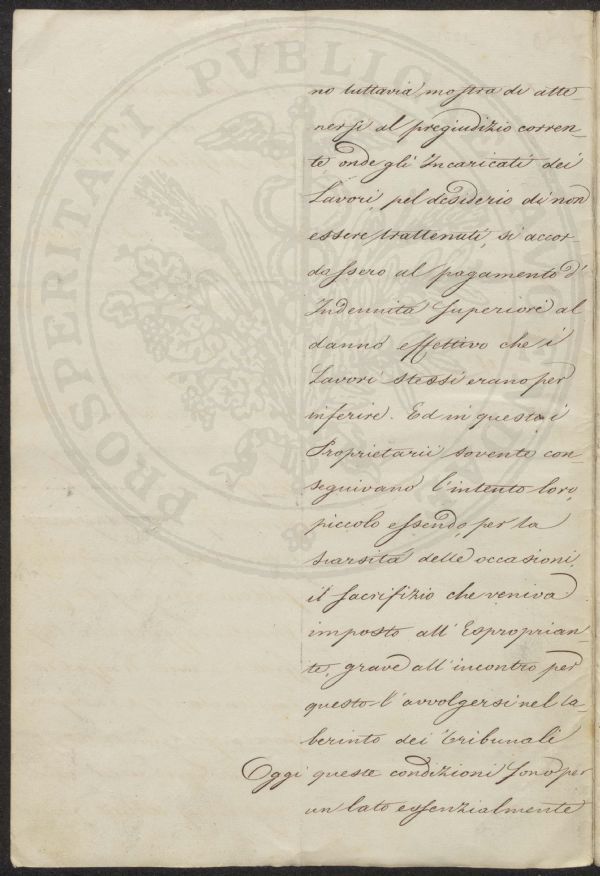 no tuttavia mostra di atte-
nersi al pregiudizio corren-
te onde gli Incaricati dei
Lavori, pel desiderio di non
essere trattenuti, si accor-
dassero al pagamento d'
Indennità superiore al
danno effettivo che i
Lavori stessi erano per
inferire. Ed in questo i
Proprietarii sovente con-
seguivano l'intento loro,
piccolo essendo, per la
scarsità delle occasioni,
il sacrifizio che veniva
imposto all'Esproprian-
te, grave all'incontro per
questo l'avvolgersi nel la-
berinto dei Tribunali
Oggi queste condizioni sono per
un lato essenzialmente
PROSPERITATI PVBLICAE